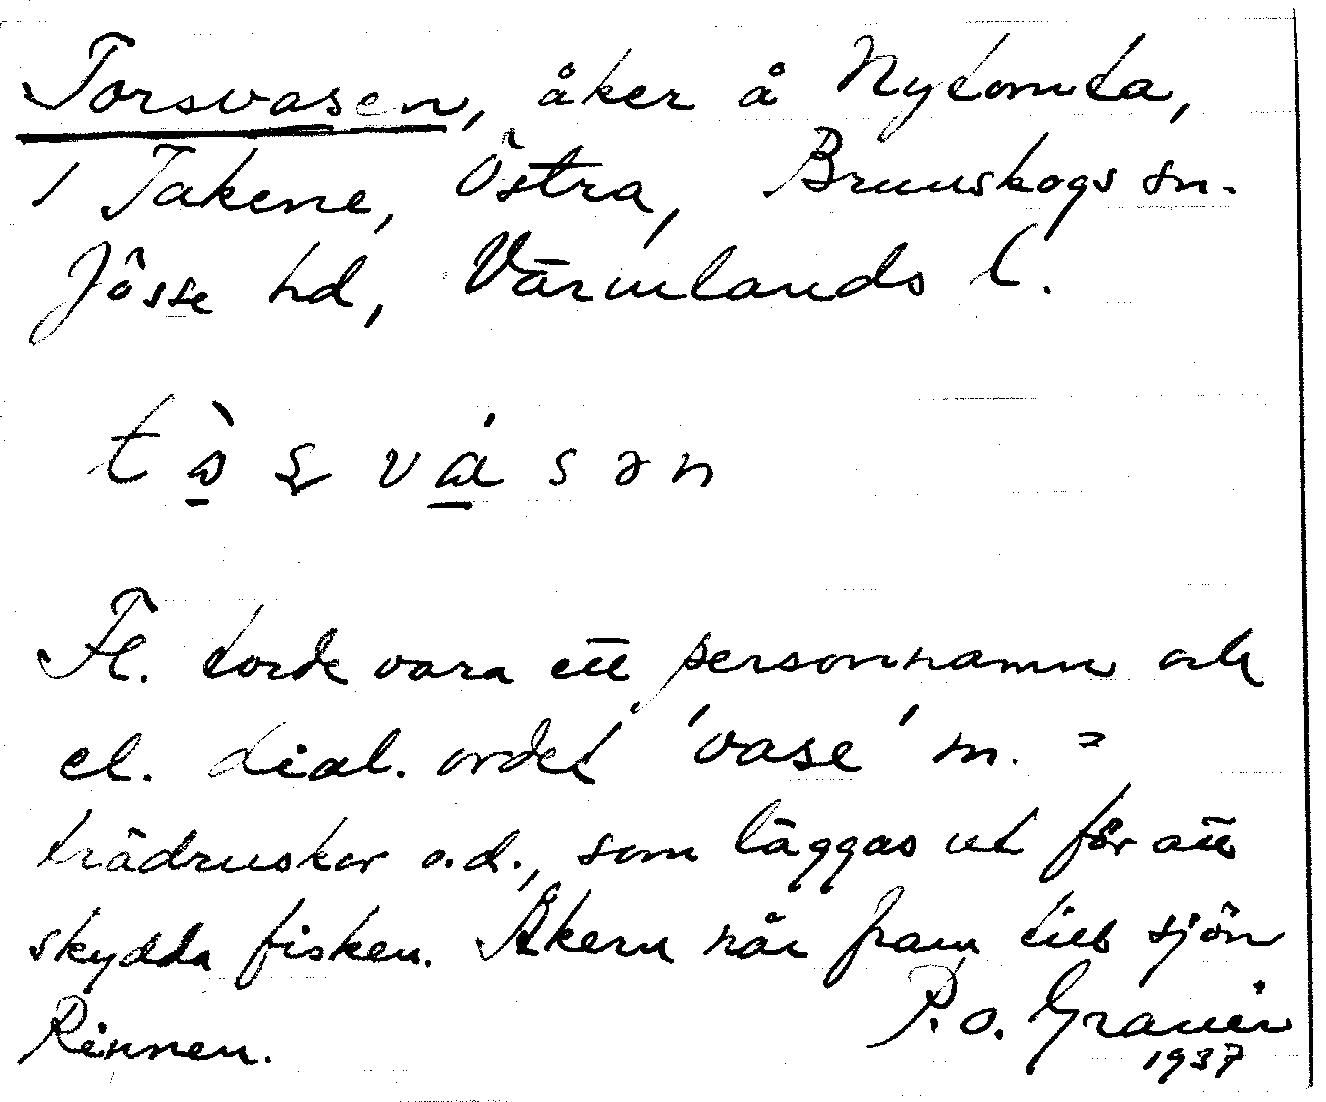 Torsvasen, åker å Nytomta,
1 Takene, Östra, Brunskogs sn.
Jösse hd, Värmlands l.
tɷ̀ʂvásən
Fl. torde vara ett personnamn och
el. dial. ordet 'vase' m. =
trädruskor o.d., som läggas ut för att
skydda fisken. Åkern når fram till sjön
Rinnen. P.O. Graner
1937